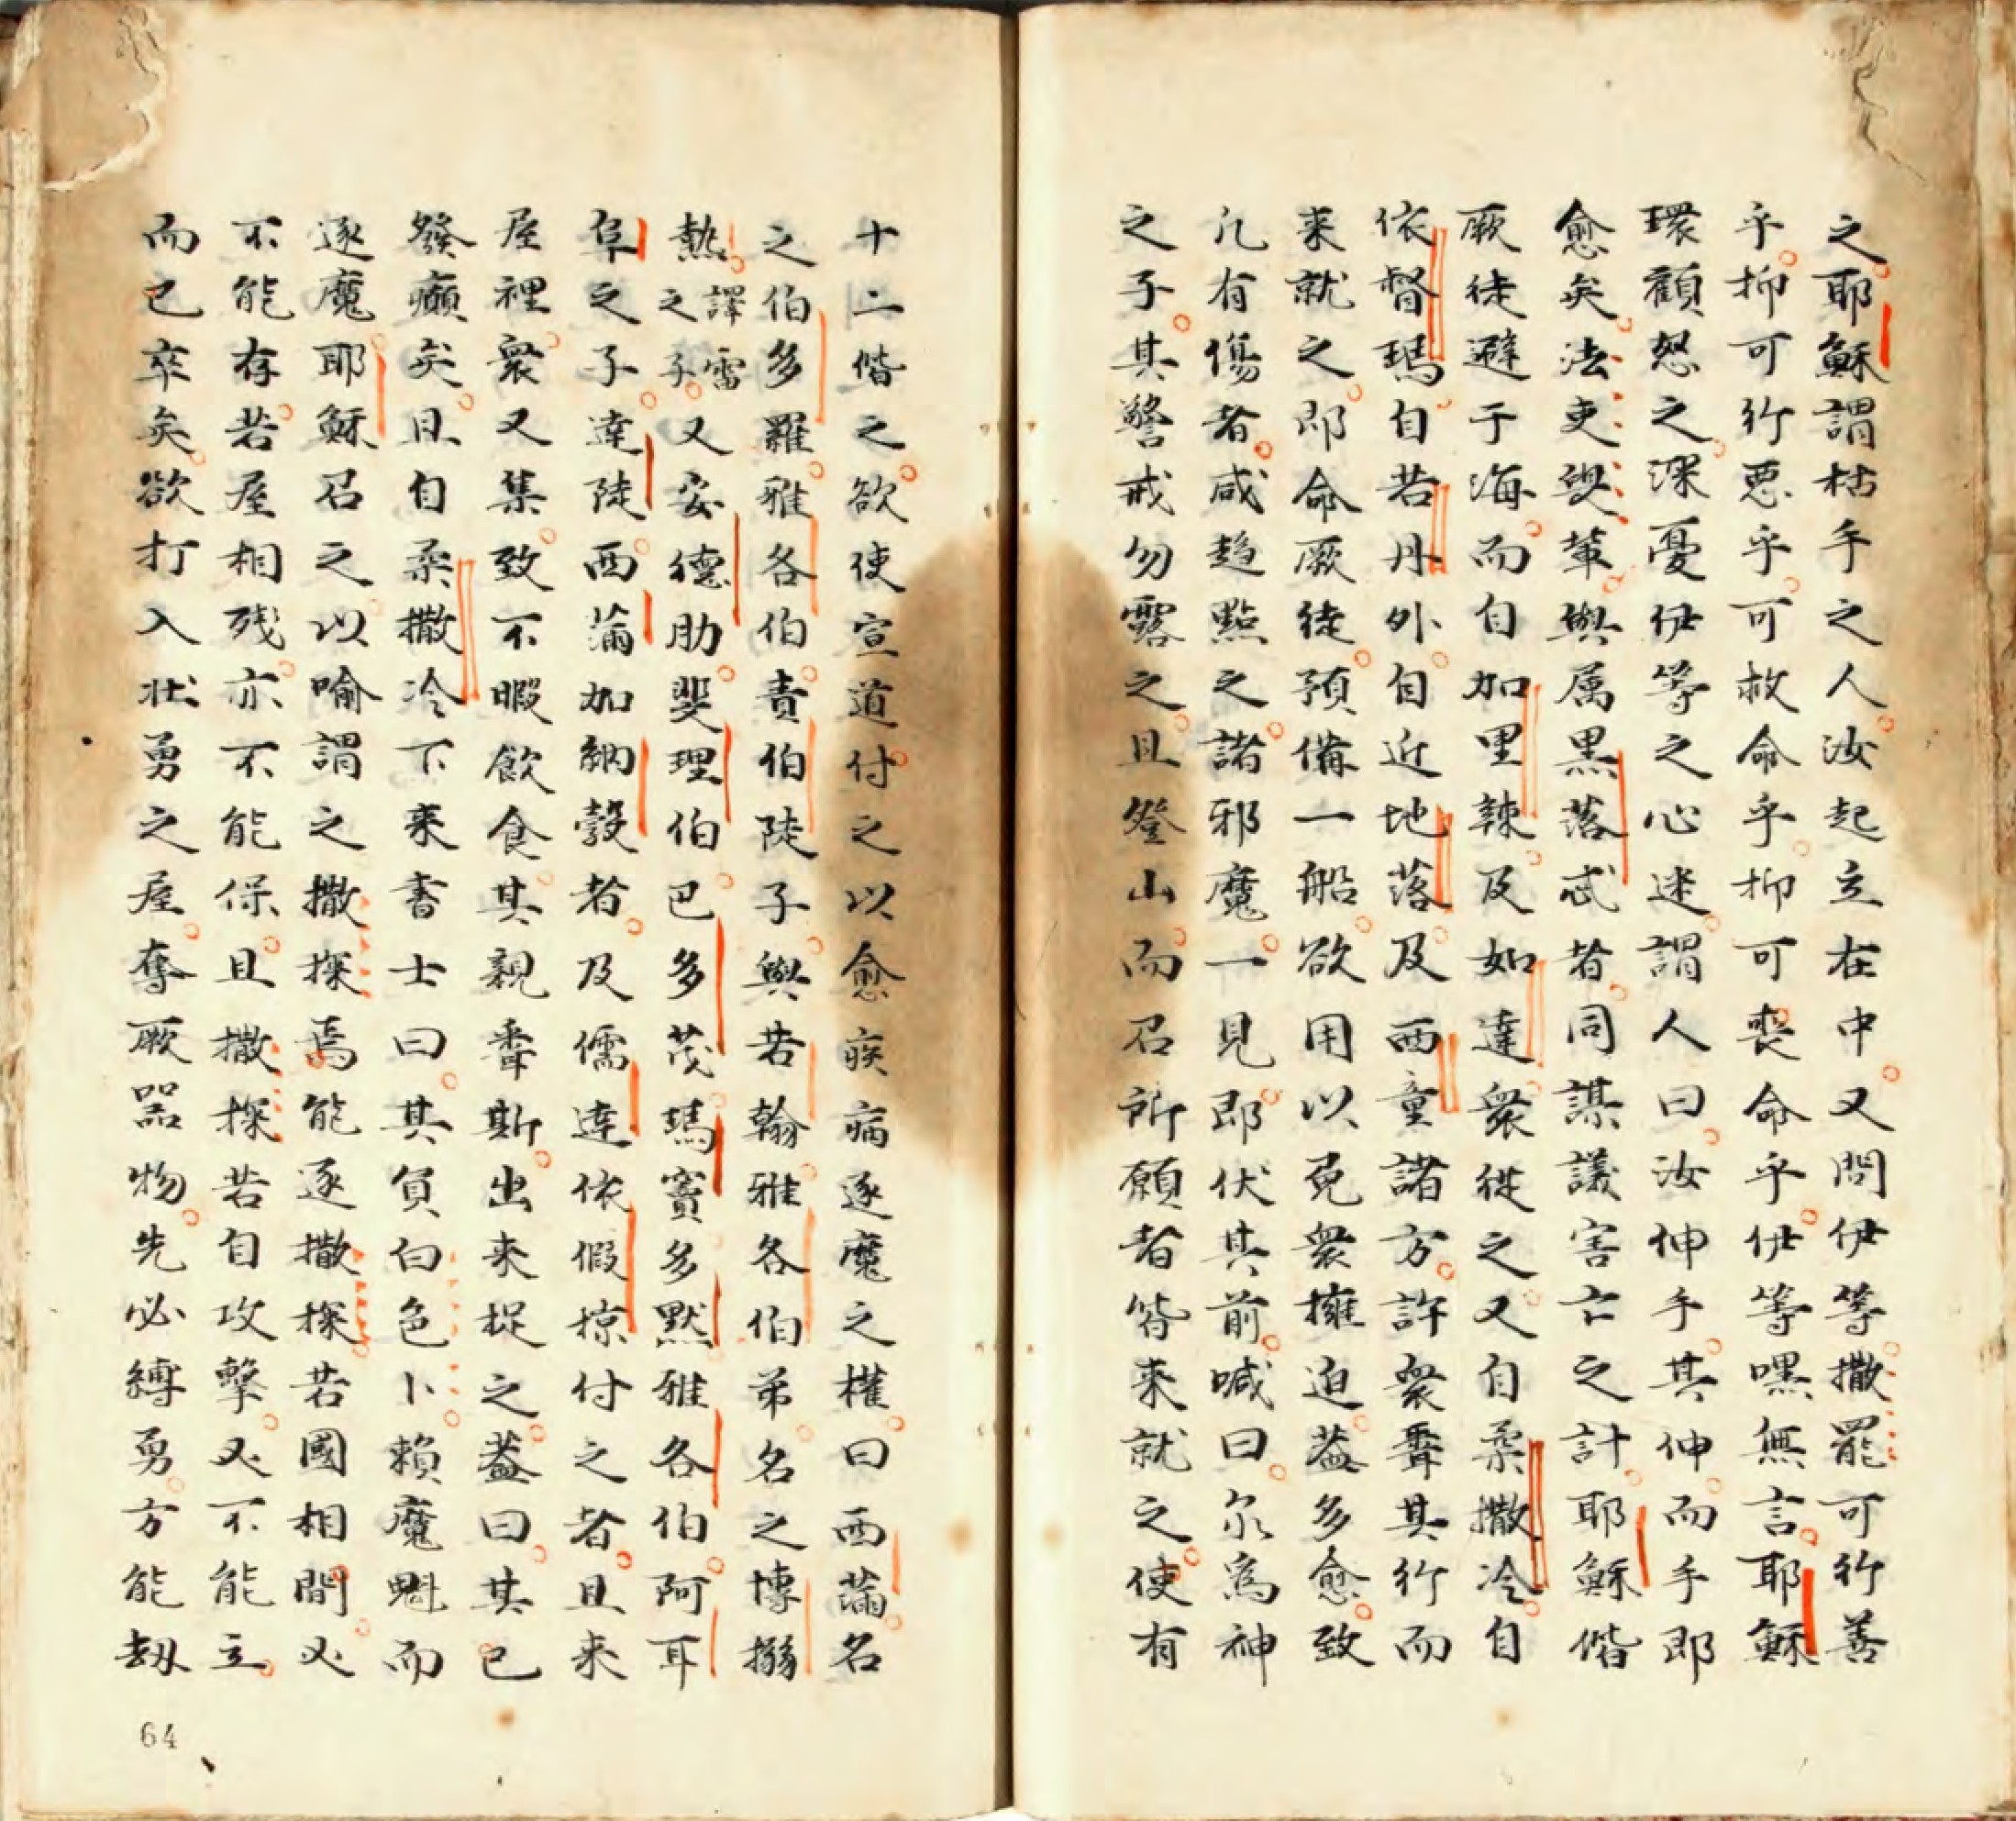 之耶穌謂枯手之人汝起立在中又問伊等撒罷可行善
乎抑可行悪乎可救命乎抑可喪命乎伊等嘿無言耶穌
環顧怒之深憂伊等之心迷謂人曰汝伸手其伸而手即
愈矣法吏㒰軰與属黒落忒者同謀議害亡之計耶穌偕
厥徒避于海而自加里辣及如達衆従之又自柔撒冷自
依督瑪自若丹外自近地落及西童諸方許衆聞其行而
来就之即命厥徒預備一船欲用以免衆擁迫蓋多愈致
凢有傷者咸趋點之諸邪魔一見即伏其前喊曰尔為神
之子其警戒勿露之且登山而召所願者皆来就之使有
十二偕之欲使宣道付之以愈疾病逐魔之權曰西滿名
之伯多羅雅各伯責伯陡子與若翰雅各伯弟名之博搦
熱譯雷之子又安德肋斐理伯巴多茂瑪竇多黙雅各伯阿耳
阜之子達陡西滿加納彀者及儒達依假掠付之者且来
屋裡衆又集致不暇飲食其親聞斯出来捉之蓋曰其已
發癲矣且自柔撒冷下来書士曰其負白色卜賴魔魁而
逐魔耶穌召之以喻謂之撒探焉能逐撒探若國相間必
不能存若屋相残亦不能保且撒探若自攻擊必不能立
而已卒矣欲打入壮勇之屋奪厥器物先必縛勇方能刼
64